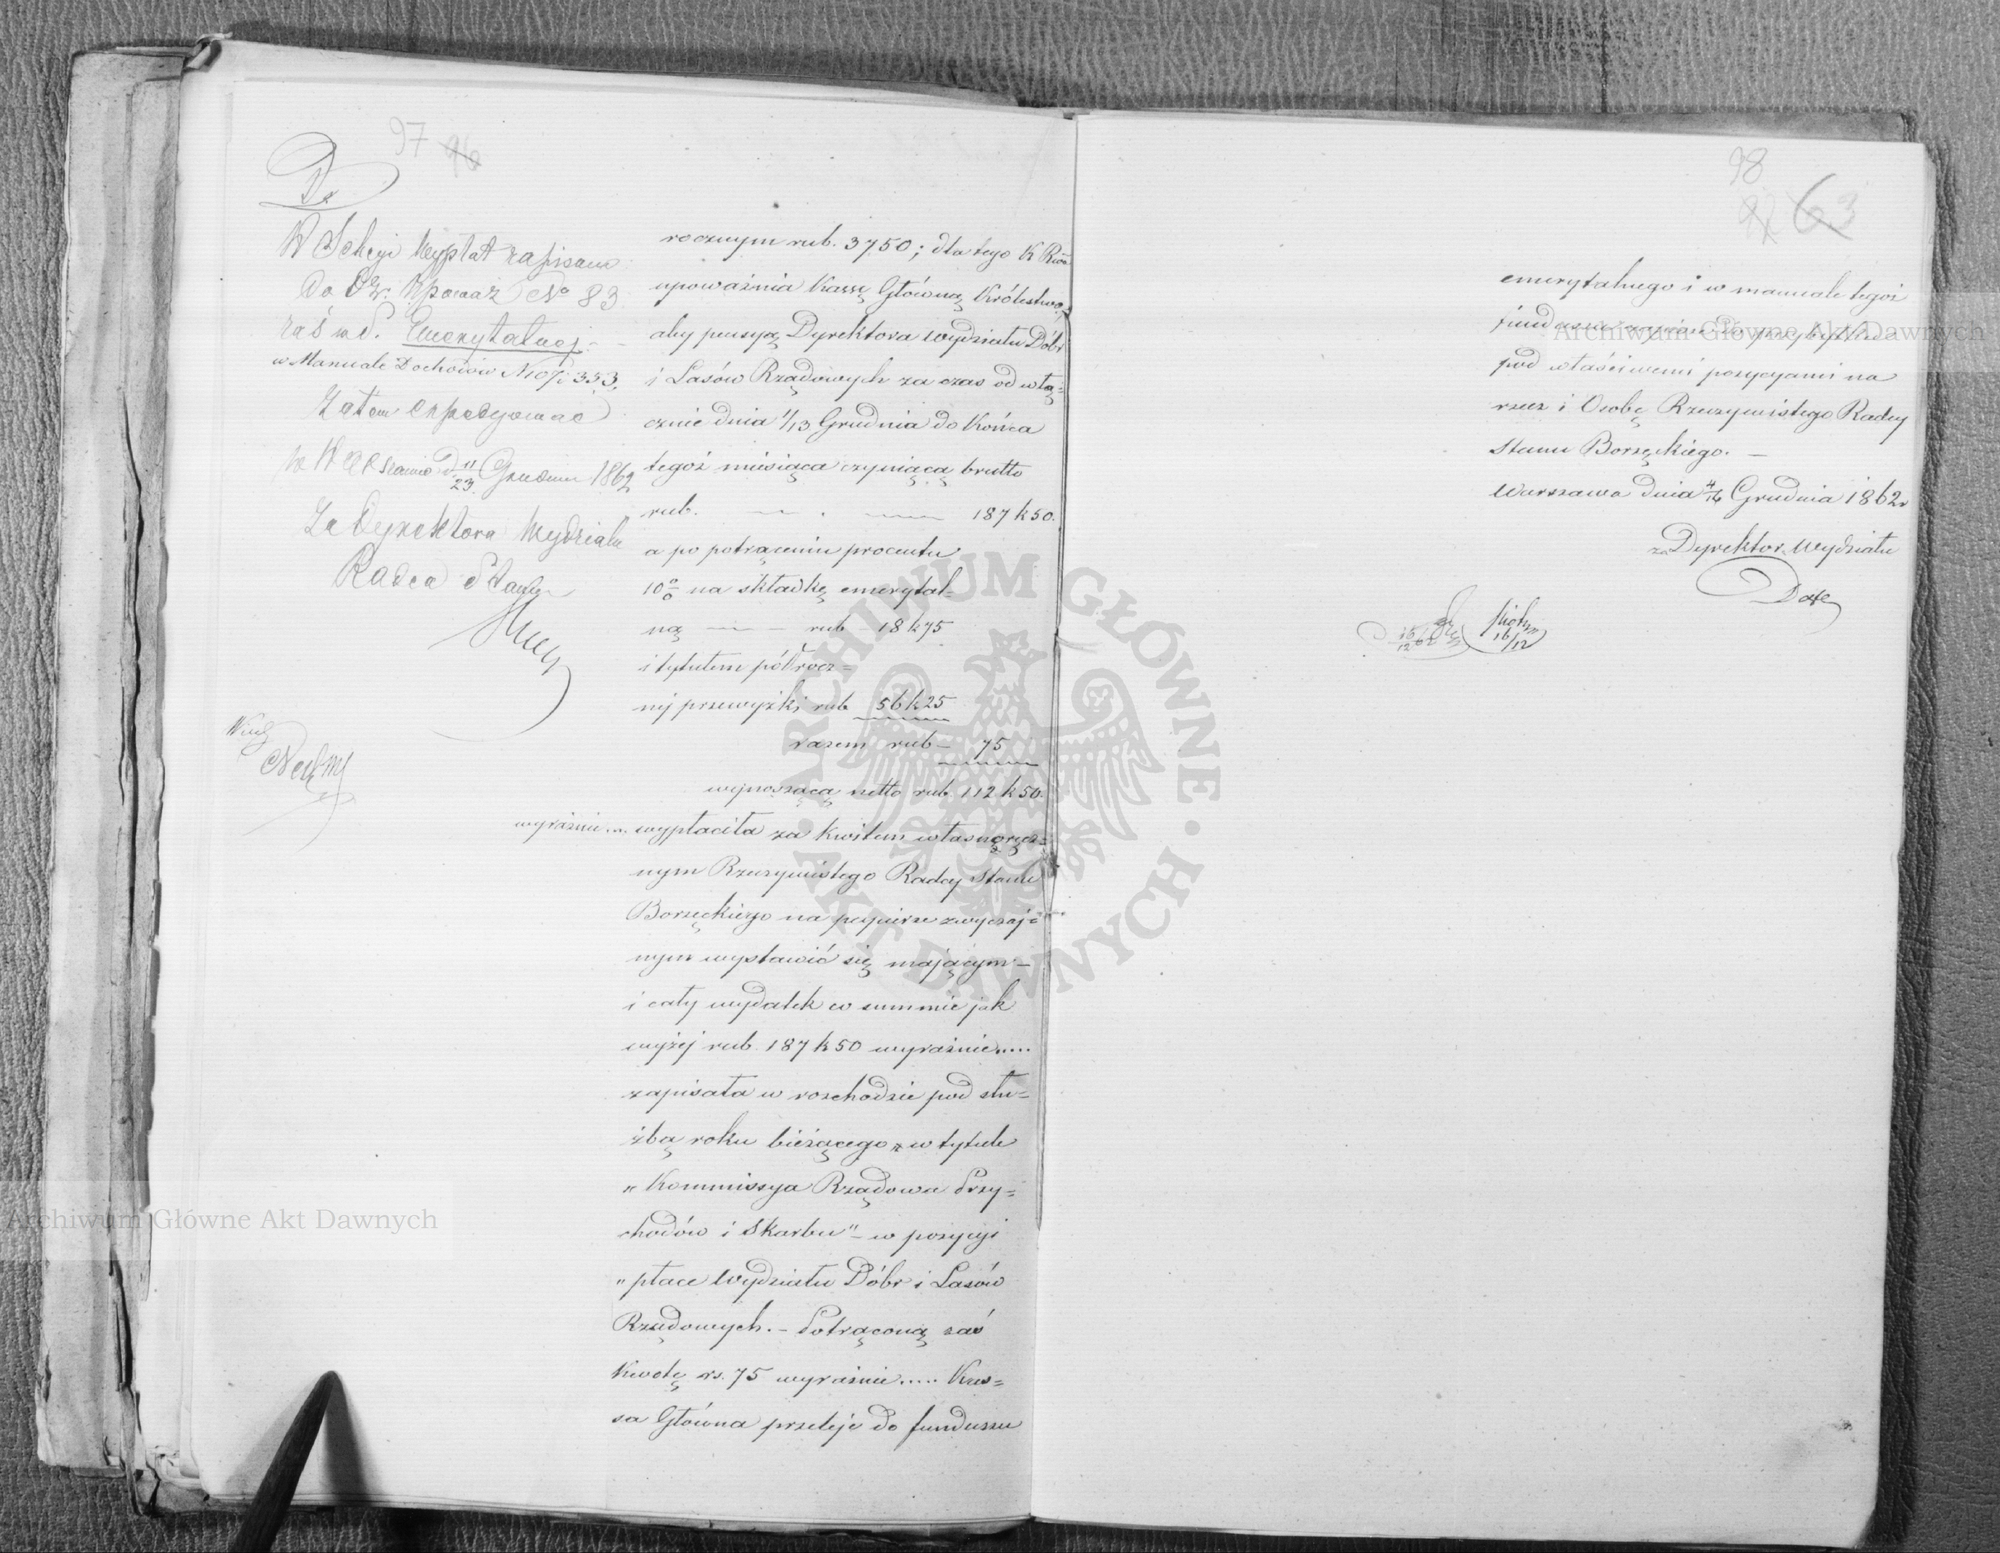 97 96
Do
W Sekcyi Wypłat zapisano
do Dz. Upoważ No 83
zaś w S. Emerytalnej
w Manuale Dochodów N 353.
Zatem expedyować
w Warszawie d. 11/23 Grudnia 1862
Za Dyrektora Wydziału
Radca Stanu
rocznym rub. 3750; dla tego K Rząd.
upoważnia Kassę Główną Królestwa,
aby pensyą Dyrektora Wydziału Dóbr
i Lasów Rządowych za czas od włą-
cznie dnia 1/13 Grudnia do końca
tegoż miesiąca czyniącą brutto
rub. — . — 187 k 50.
a po potrąceniu procentu
10 % na składkę emerytal-
ną — — rub 18 k 75
i tytułem półrocz-
nej przewyżki rub 56 k 25
razem rub — 75
wynoszącą netto rub 112 k 50.
wyraźnie.... wypłaciła za kwitem własnoręcz-
nym Rzeczywistego Radcy Stanu
Borzęckiego na papierze zwyczaj-
nym wystawić się mającym —
i cały wydatek w summie jak
wyżej rub. 187 k 50 wyraźnie.....
zapisała w rozchodzie pod słu-
żbą roku bieżącego w tytule
„Kommissya Rządowa Przy-
chodów i Skarbu" — w pozycyi
„płace Wydziału Dóbr i Lasów
Rządowych. — Potrąconą zaś
kwotę rs. 75 wyraźnie..... Kas-
sa Główna przeleje do funduszu
98
63
emerytalnego i w manuale tegoż
funduszu zapisze do przybytku
pod właściwemi pozycyami na
rzecz i Osobę Rzeczywistego Radcy
Stanu Borzęckiego. —
Warszawa dnia 4/16 Grudnia 1862 r
za Dyrektor Wydziału
16/12 62
16/12
Archiwum Główne Akt Dawnych
Archiwum Główne Akt Dawnych
ARCHIWUM GŁÓWNE · AKT DAWNYCH ·